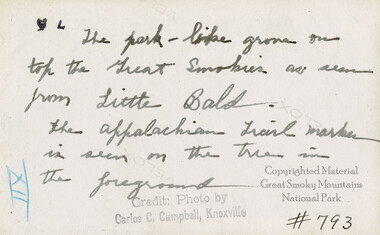 The park-like grove on
top the Great Smokies as seen
from Little Bald.
The Appalachian Trail marker
is seen on the tree in
the foreground
XII
Credit: Photo by
Carlos C. Campbell, Knoxville
Copyrighted Material
Great Smoky Mountains
National Park
# 793